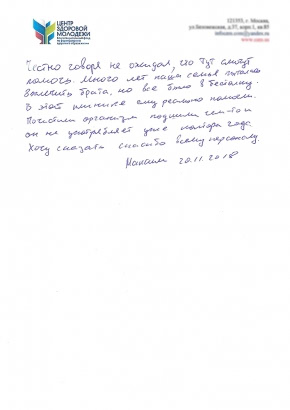 ЦЕНТР
ЗДОРОВОЙ
МОЛОДЕЖИ
121353, г. Москва,
Честно говоря не ожидал, что тут смогут
помочь. Много лет наша семья пыталась
вылечить брата, но все было в бестолку.
В этой клинике ему реально помогли.
Почистили организм подлили чем-то и
он не употребляет уже полтора года.
Хочу сказать спасибо всему персоналу.
Максим 20.11.2018